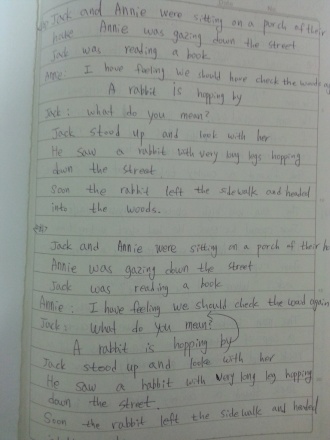 Jack and Annie were sitting on a porch of their
Annie was gazing down the street
Jack was reading a book
I have feeling we should have check the woods
A rabbit is hopping by
Jack: what do you mean?
Jack stood up and look with her
He saw a rabbit with very long legs hopping
down the street
Soon the rabbit left the sidewalk and headed
into the woods.
Jack and Annie were sitting on a porch of their
Annie was gazing down the street
Jack was reading a book
Annie: I have feeling we should check the wood again
Jack: What do you mean?
A rabbit is hopping by
Jack stood up and looke with her
He saw a rabbit with very long leg hopping
down the street.
Soon the rabbit left the sidewalk and headed